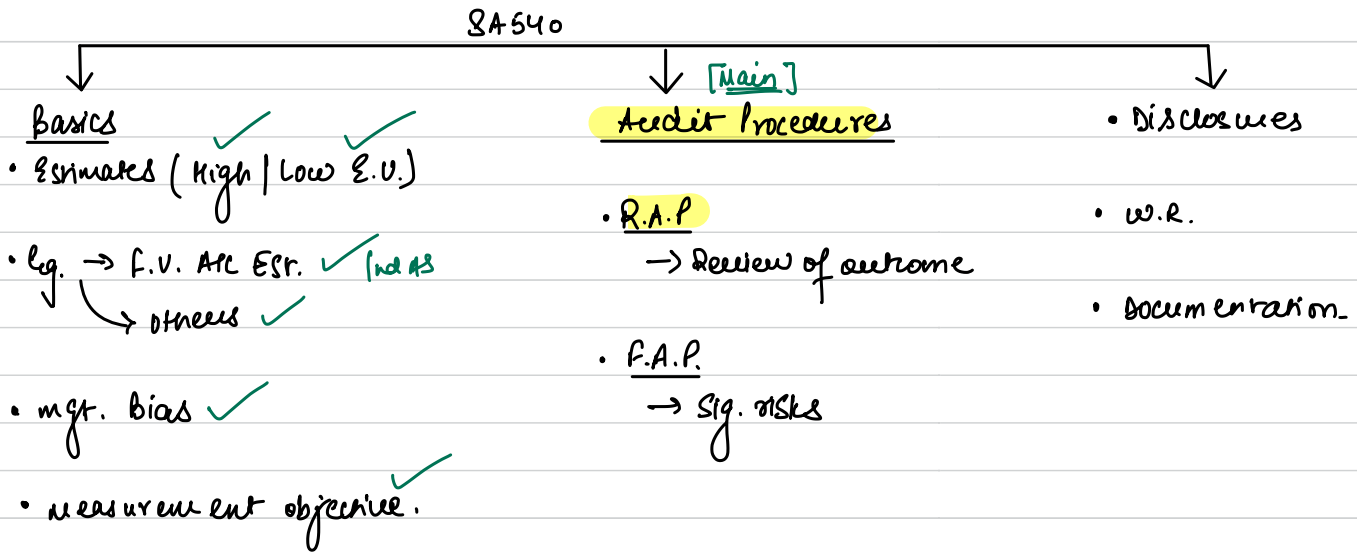 SA540
[Main]
Basics
• Estimates (High | Low E.U.)
• eg. → F.V. A/c Est. Ind AS
→ others
• mgt. Bias
• measurement objective.
Audit Procedures
• R.A.P
→ Review of outcome
• F.A.P.
→ Sig. risks
• Disclosures
• W.R.
• Documentation